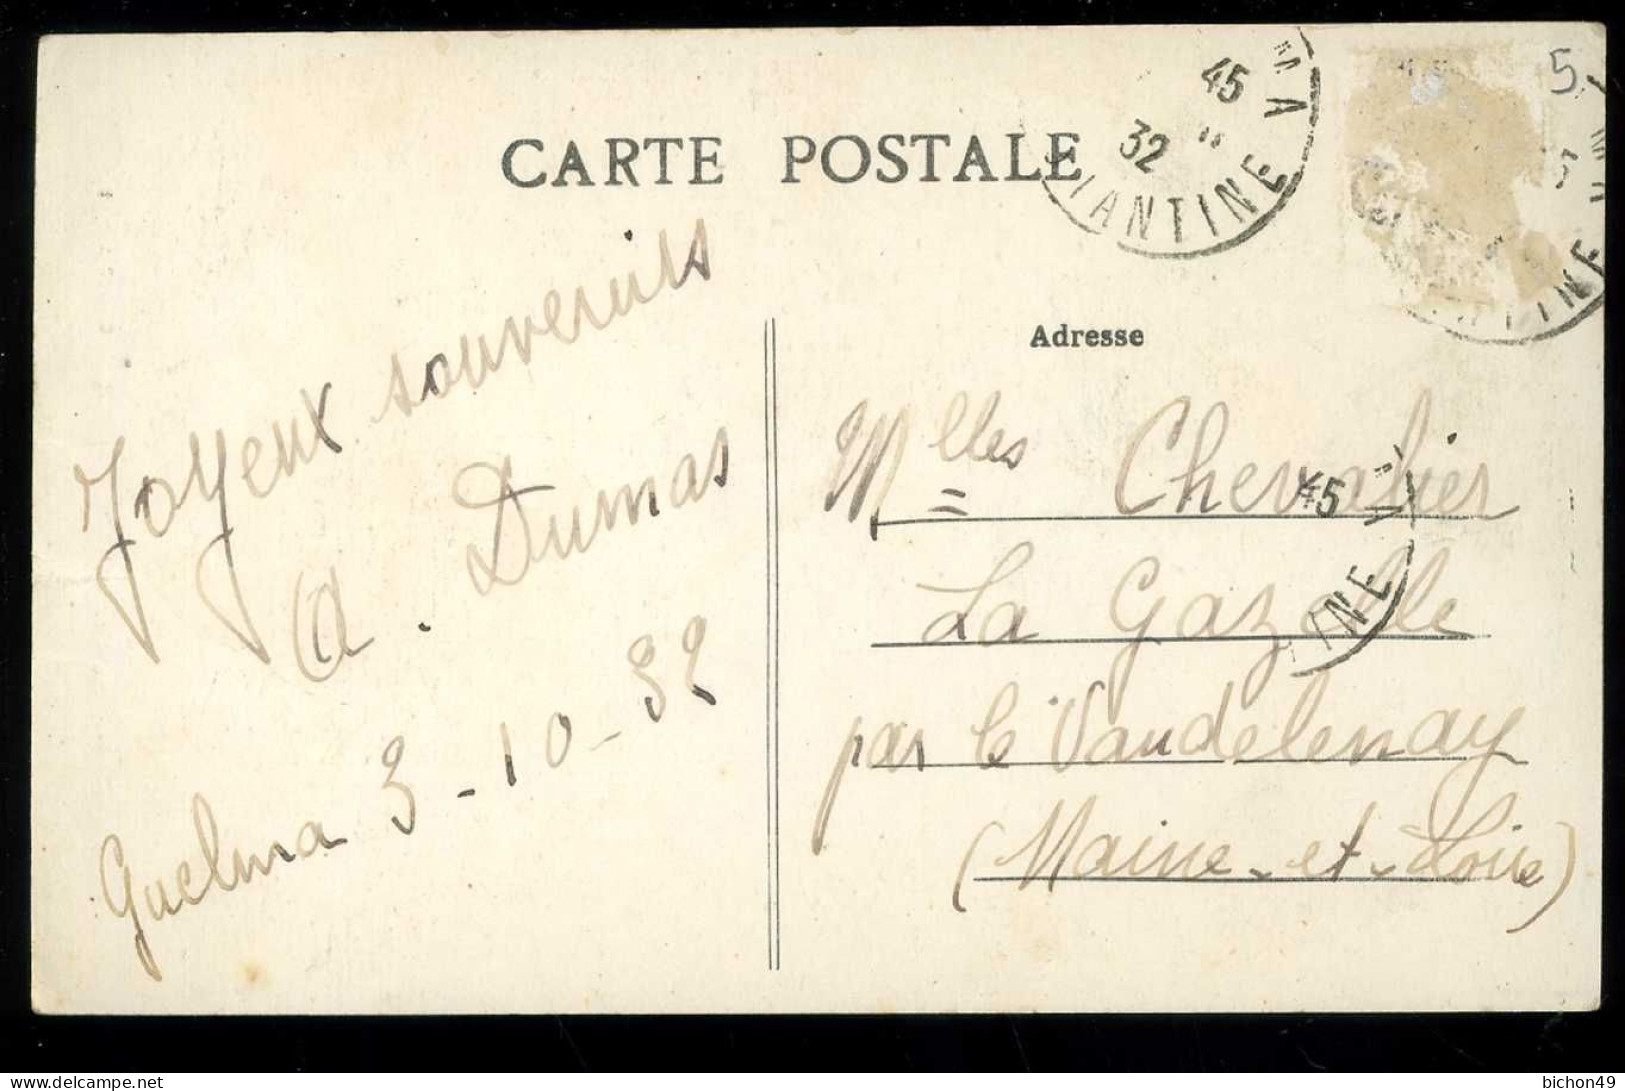 CARTE POSTALE
45
32
TANTINE
MA
5
Adresse
Joyeux souvenirs
A. Dumas
Guelma 3-10-32
Mlles Chevalier
La Gazelle
par le Vaudelenay
(Maine-et-Loire)
45
TINE
bichon49